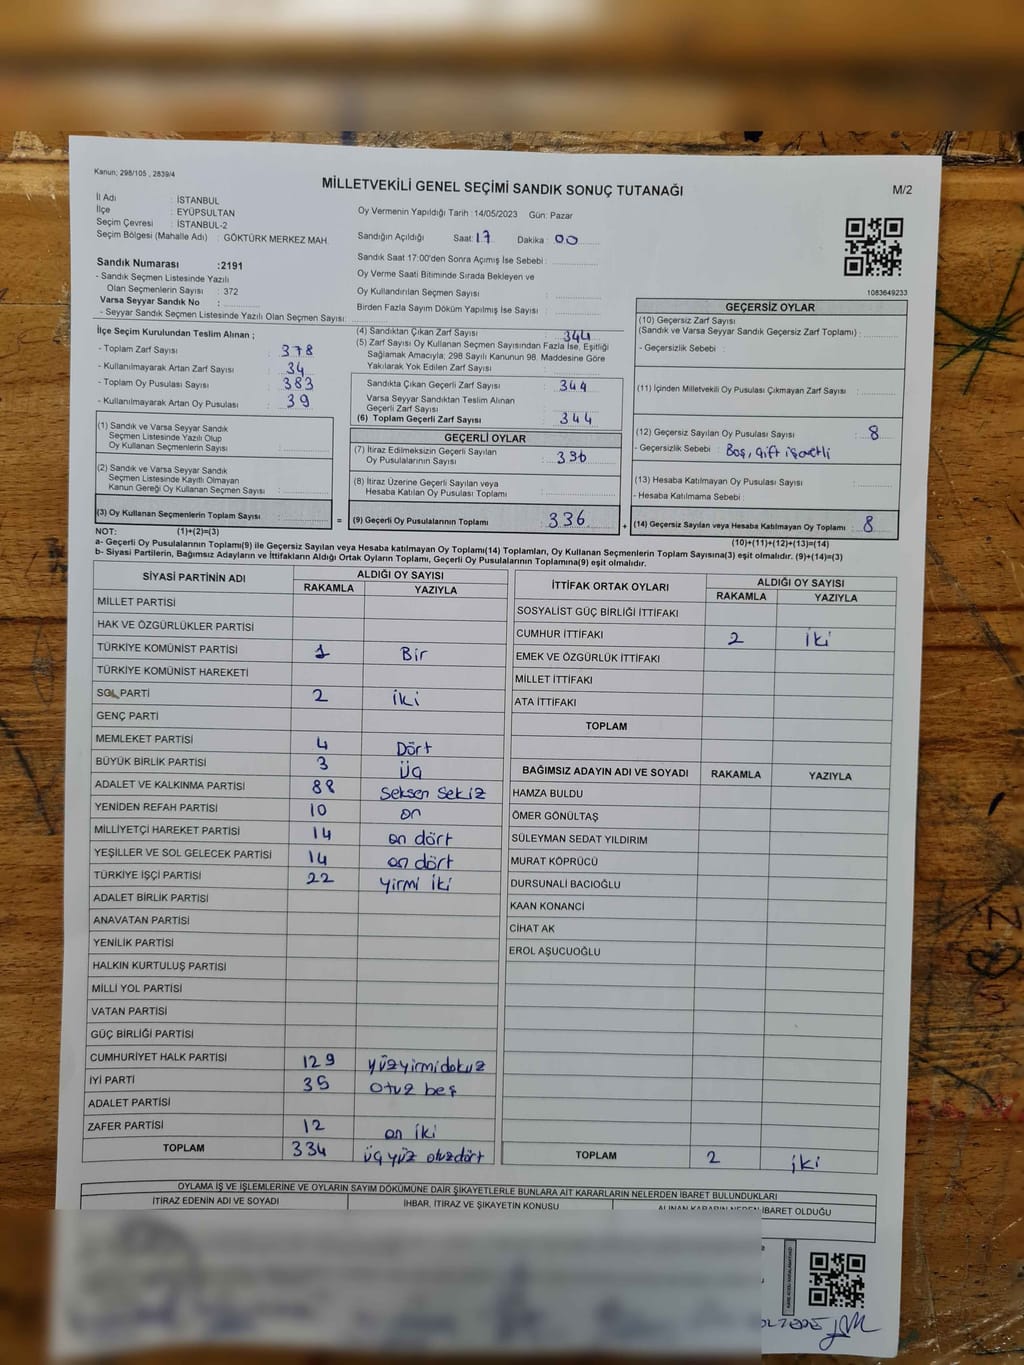 Kanun; 298/105 , 2839/4
MİLLETVEKİLİ GENEL SEÇİMİ SANDIK SONUÇ TUTANAĞI
M/2
İl Adı : İSTANBUL
İlçe : EYÜPSULTAN
Seçim Çevresi : İSTANBUL-2
Seçim Bölgesi (Mahalle Adı) : GÖKTÜRK MERKEZ MAH.
Sandık Numarası :2191
- Sandık Seçmen Listesinde Yazılı
Olan Seçmenlerin Sayısı : 372
Varsa Seyyar Sandık No :
- Seyyar Sandık Seçmen Listesinde Yazılı Olan Seçmen Sayısı:
Oy Vermenin Yapıldığı Tarih : 14/05/2023 Gün: Pazar
Sandığın Açıldığı Saat: 17 Dakika : 00
Sandık Saat 17:00'den Sonra Açımış İse Sebebi :
Oy Verme Saati Bitiminde Sırada Bekleyen ve
Oy Kullandırılan Seçmen Sayısı :
Birden Fazla Sayım Döküm Yapılmış İse Sayısı :
1083649233
İlçe Seçim Kurulundan Teslim Alınan ;
- Toplam Zarf Sayısı : 378
- Kullanılmayarak Artan Zarf Sayısı : 34
- Toplam Oy Pusulası Sayısı : 383
- Kullanılmayarak Artan Oy Pusulası : 39
(1) Sandık ve Varsa Seyyar Sandık
Seçmen Listesinde Yazılı Olup
Oy Kullanan Seçmenlerin Sayısı :
(2) Sandık ve Varsa Seyyar Sandık
Seçmen Listesinde Kayıtlı Olmayan
Kanun Gereği Oy Kullanan Seçmen Sayısı :
(3) Oy Kullanan Seçmenlerin Toplam Sayısı :
(4) Sandıktan Çıkan Zarf Sayısı : 344
(5) Zarf Sayısı Oy Kullanan Seçmen Sayısından Fazla İse, Eşitliği
Sağlamak Amacıyla; 298 Sayılı Kanunun 98. Maddesine Göre
Yakılarak Yok Edilen Zarf Sayısı :
Sandıkta Çıkan Geçerli Zarf Sayısı : 344
Varsa Seyyar Sandıktan Teslim Alınan
Geçerli Zarf Sayısı :
(6) Toplam Geçerli Zarf Sayısı : 344
GEÇERLİ OYLAR
(7) İtiraz Edilmeksizin Geçerli Sayılan
Oy Pusulalarının Sayısı : 336
(8) İtiraz Üzerine Geçerli Sayılan veya
Hesaba Katılan Oy Pusulası Toplamı :
= (9) Geçerli Oy Pusulalarının Toplamı : 336
GEÇERSİZ OYLAR
(10) Geçersiz Zarf Sayısı
(Sandık ve Varsa Seyyar Sandık Geçersiz Zarf Toplamı) :
- Geçersizlik Sebebi :
(11) İçinden Milletvekili Oy Pusulası Çıkmayan Zarf Sayısı :
(12) Geçersiz Sayılan Oy Pusulası Sayısı : 8
- Geçersizlik Sebebi : Boş, Çift işaretli
(13) Hesaba Katılmayan Oy Pusulası Sayısı :
- Hesaba Katılmama Sebebi :
+ (14) Geçersiz Sayılan veya Hesaba Katılmayan Oy Toplamı : 8
NOT: (1)+(2)=(3)
(10)+(11)+(12)+(13)=(14)
a- Geçerli Oy Pusulalarının Toplamı(9) ile Geçersiz Sayılan veya Hesaba katılmayan Oy Toplamı(14) Toplamları, Oy Kullanan Seçmenlerin Toplam Sayısına(3) eşit olmalıdır. (9)+(14)=(3)
b- Siyasi Partilerin, Bağımsız Adayların ve İttifakların Aldığı Ortak Oyların Toplamı, Geçerli Oy Pusulalarının Toplamına(9) eşit olmalıdır.
SİYASİ PARTİNİN ADI ALDIĞI OY SAYISI
RAKAMLA YAZIYLA
MİLLET PARTİSİ
HAK VE ÖZGÜRLÜKLER PARTİSİ
TÜRKİYE KOMÜNİST PARTİSİ 1 Bir
TÜRKİYE KOMÜNİST HAREKETİ
SOL PARTİ 2 iki
GENÇ PARTİ
MEMLEKET PARTİSİ 4 Dört
BÜYÜK BİRLİK PARTİSİ 3 Üç
ADALET VE KALKINMA PARTİSİ 88 seksen sekiz
YENİDEN REFAH PARTİSİ 10 on
MİLLİYETÇİ HAREKET PARTİSİ 14 on dört
YEŞİLLER VE SOL GELECEK PARTİSİ 14 on dört
TÜRKİYE İŞÇİ PARTİSİ 22 yirmi iki
ADALET BİRLİK PARTİSİ
ANAVATAN PARTİSİ
YENİLİK PARTİSİ
HALKIN KURTULUŞ PARTİSİ
MİLLİ YOL PARTİSİ
VATAN PARTİSİ
GÜÇ BİRLİĞİ PARTİSİ
CUMHURİYET HALK PARTİSİ 129 yüzyirmidokuz
İYİ PARTİ 35 otuz beş
ADALET PARTİSİ
ZAFER PARTİSİ 12 on iki
TOPLAM 334 üç yüz otuzdört
İTTİFAK ORTAK OYLARI ALDIĞI OY SAYISI
RAKAMLA YAZIYLA
SOSYALİST GÜÇ BİRLİĞİ İTTİFAKI
CUMHUR İTTİFAKI 2 iki
EMEK VE ÖZGÜRLÜK İTTİFAKI
MİLLET İTTİFAKI
ATA İTTİFAKI
TOPLAM
BAĞIMSIZ ADAYIN ADI VE SOYADI RAKAMLA YAZIYLA
HAMZA BULDU
ÖMER GÖNÜLTAŞ
SÜLEYMAN SEDAT YILDIRIM
MURAT KÖPRÜCÜ
DURSUNALİ BACIOĞLU
KAAN KONANCİ
CİHAT AK
EROL AŞUCUOĞLU
TOPLAM 2 iki
OYLAMA İŞ VE İŞLEMLERİNE VE OYLARIN SAYIM DÖKÜMÜNE DAİR ŞİKAYETLERLE BUNLARA AİT KARARLARIN NELERDEN İBARET BULUNDUKLARI
İTİRAZ EDENİN ADI VE SOYADI İHBAR, İTİRAZ VE ŞİKAYETİN KONUSU ALINAN KARARIN NEDEN İBARET OLDUĞU